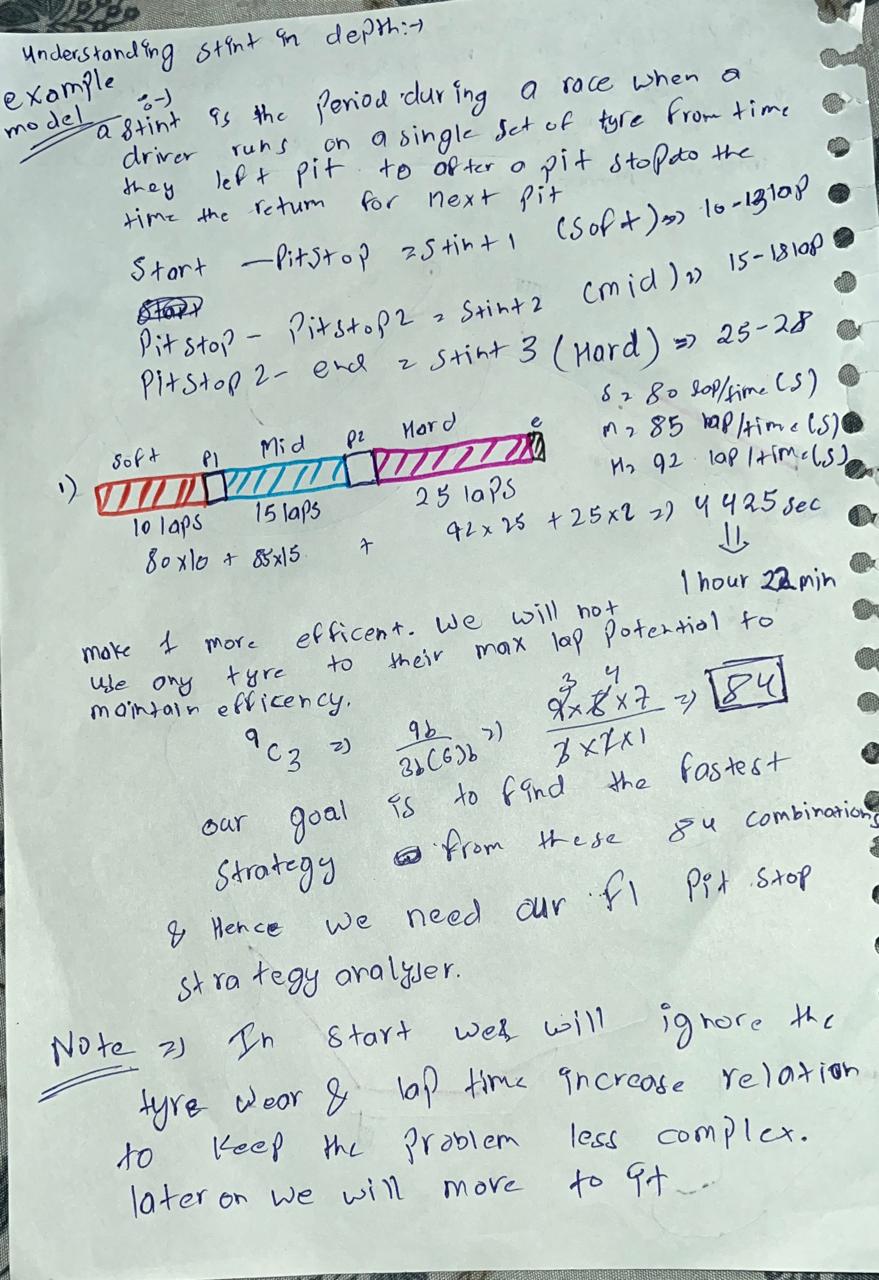 Understanding stint in depth:→
example
model :-) a stint is the period during a race when a
driver runs on a single set of tyre from time
they left pit to after a pit stop to the
time the return for next pit
Start - Pitstop = Stint 1 (Soft) => 10-13 lap
Pit stop - Pitstop 2 = Stint 2 (mid) => 15-18 lap
Pitstop 2 - end = Stint 3 (Hard) => 25-28
S = 80 lap/time (s)
M = 85 lap/time (s)
H = 92 lap/time (s)
Soft P1 Mid P2 Hard e
1)
10 laps 15 laps 25 laps
80x10 + 85x15 + 92 x 25 + 25x2 => 4425 sec
⇓
1 hour 22 min
make 1 more efficent. we will not
use any tyre to their max lap potential to
maintain efficency.
⁹C₃ => 9b/3b(6)b => 9x8x7/3x2x1 => 84
3 4
our goal is to find the fastest
strategy from these 84 combinations
& Hence we need our f1 Pit stop
strategy analyser.
Note => In start we will ignore the
tyre wear & lap time increase relation
to keep the problem less complex.
later on we will more to it